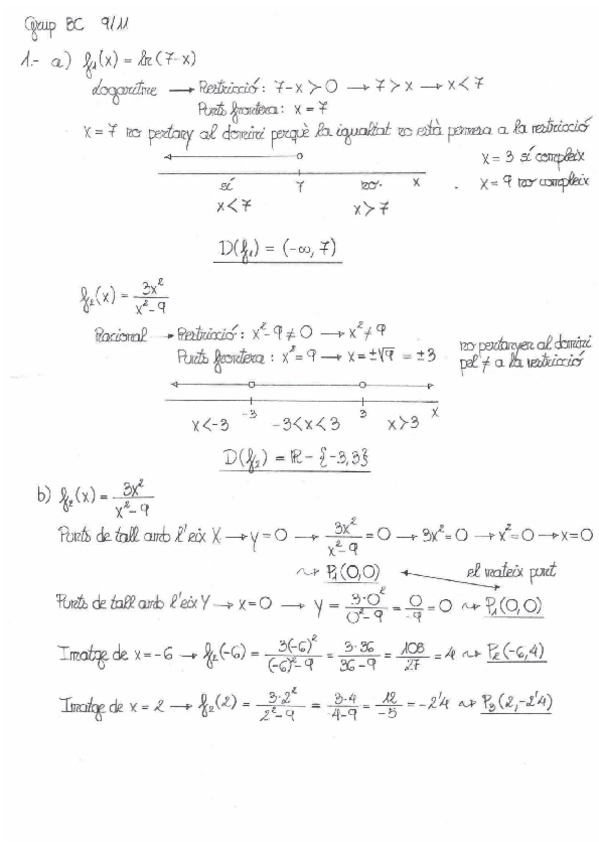 Grup BC 9/11
1.- a) f₁(x) = ln(7-x)
Logaritme → Restricció: 7-x > 0 → 7 > x → x < 7
Punts frontera: x = 7
x = 7 no pertany al domini perquè la igualtat no està permesa a la restricció
x = 3 sí compleix
sí 7 no x . x = 9 no compleix
x < 7 x > 7
D(f₁) = (-∞, 7)
f₂(x) = 3x²/(x²-9)
Racional → Restricció: x²-9 ≠ 0 → x² ≠ 9
Punts frontera: x² = 9 → x = ±√9 = ±3
no pertanyen al domini
pel ≠ a la restricció
-3 3 x
x < -3 -3 < x < 3 x > 3
D(f₂) = ℝ - {-3, 3}
b) f₂(x) = 3x²/(x²-9)
Punts de tall amb l'eix X → y = 0 → 3x²/(x²-9) = 0 → 3x² = 0 → x² = 0 → x = 0
⇝ P₁(0,0) el mateix punt
Punts de tall amb l'eix Y → x = 0 → y = 3·0²/(0²-9) = 0/-9 = 0 ⇝ P₁(0,0)
Imatge de x = -6 → f₂(-6) = 3(-6)²/((-6)²-9) = 3·36/(36-9) = 108/27 = 4 ⇝ P₂(-6,4)
Imatge de x = 2 → f₂(2) = 3·2²/(2²-9) = 3·4/(4-9) = 12/-5 = -2'4 ⇝ P₃(2,-2'4)